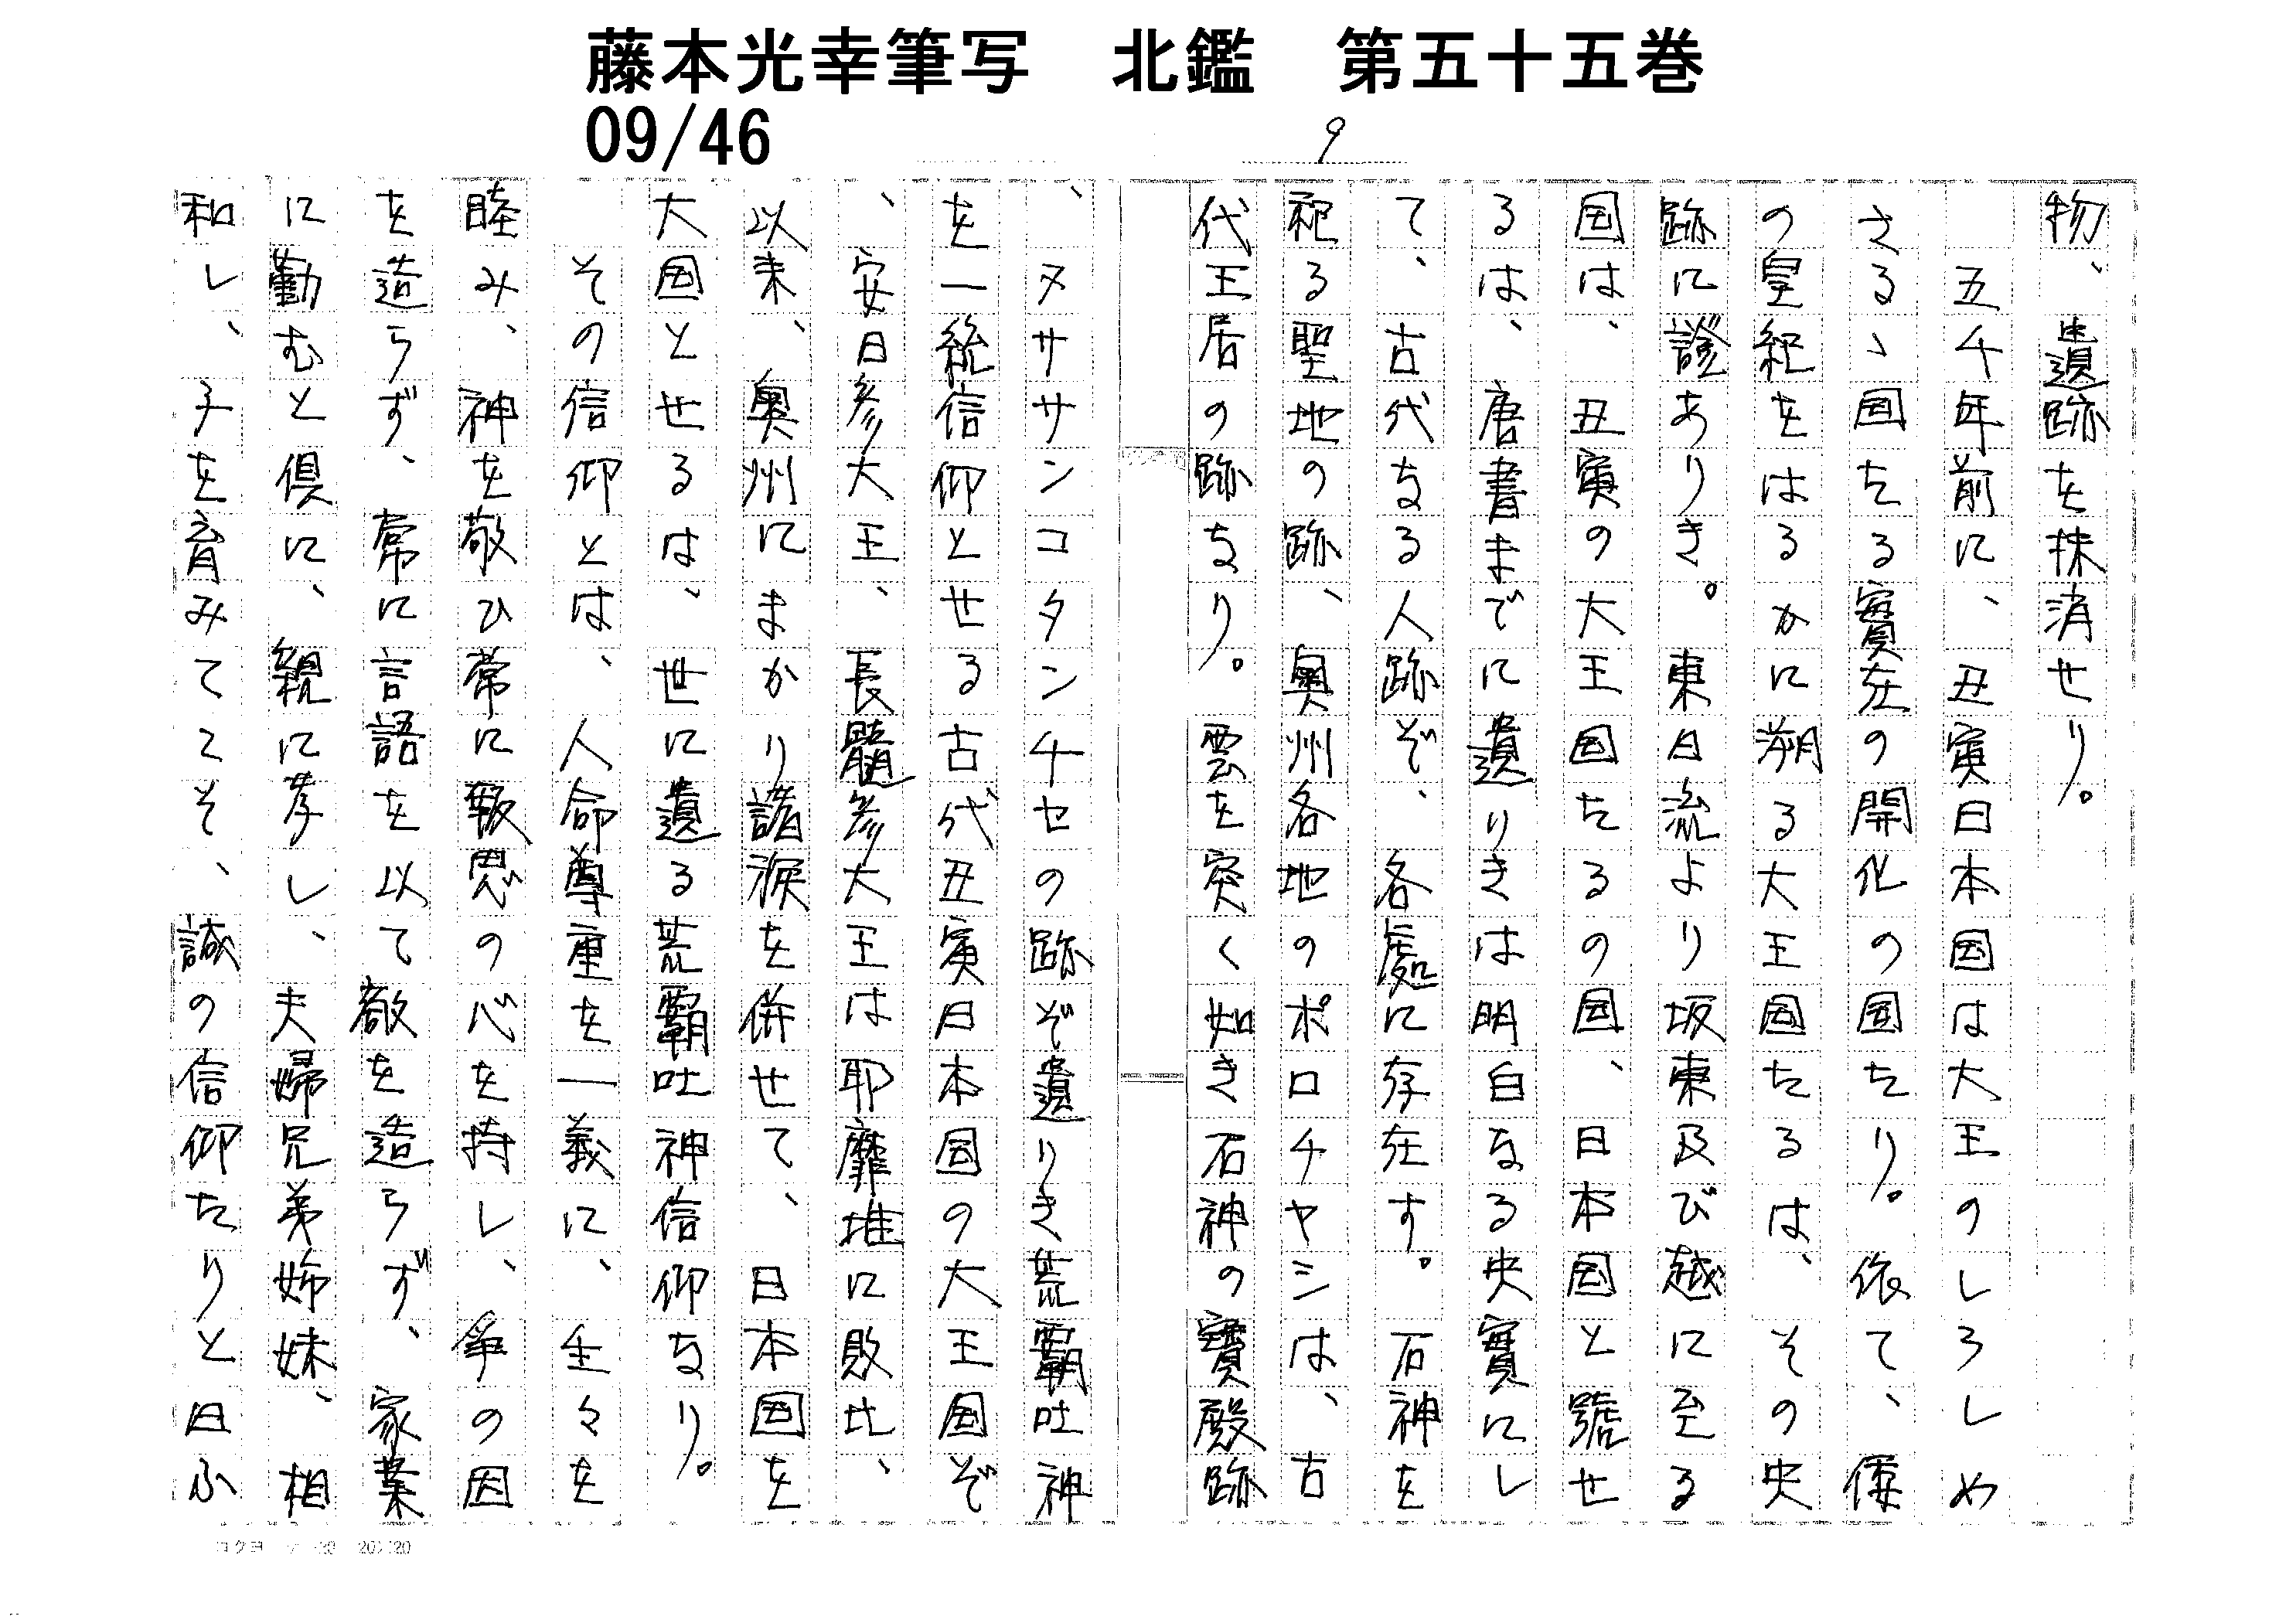 藤本光幸筆写　北鑑　第五十五巻
09/46
9
物、遺跡を抹消せり。
五千年前に、丑寅日本国は大王のしろしめ
さるゝ国たる實在の開化の国たり。依て、倭
の皇紀をはるかに溯る大王国たるは、その史
跡に證ありき。東日流より坂東及び越に至る
国は、丑寅の大王国たるの国、日本国と號せ
るは、唐書までに遺りきは明白なる史實にし
て、古代なる人跡ぞ、各處に存在す。石神を
祀る聖地の跡、奥州各地のポロチャシは、古
代王居の跡なり。雲を突く如き石神の寶殿跡
、ヌササンコタンチセの跡ぞ遺りき荒覇吐神
を一統信仰とせる古代丑寅日本国の大王国ぞ
、安日彦大王、長髄彦大王は耶靡堆に敗比、
以来、奥州にまかり諸涙を併せて、日本国を
大国とせるは、世に遺る荒覇吐神信仰なり。
その信仰とは、人命尊重を一義に、生々を
睦み、神を敬ひ常に報恩の心を持し、爭の因
を造らず、常に言語を以て敵を造らず、家業
に勤むと倶に、親に孝し、夫婦兄弟姉妹、相
和し、子を育みてこそ、誠の信仰たりと曰ふ
コクヨ　20×20